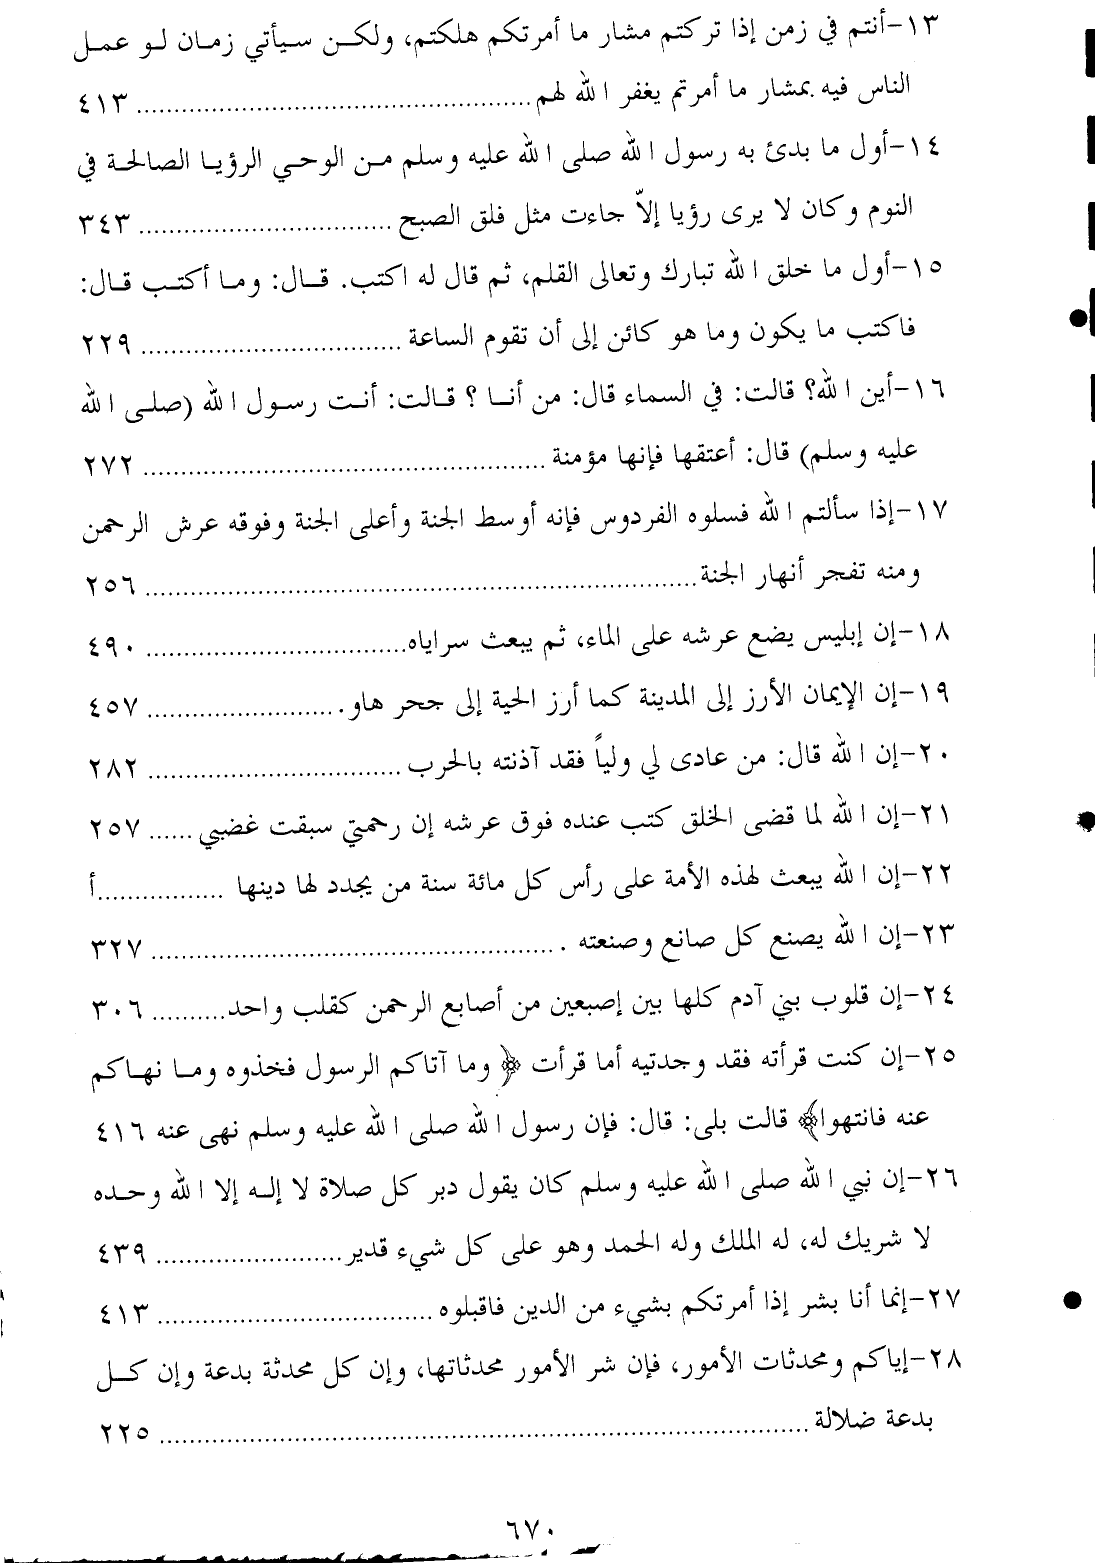 ١٣-أنتم في زمن إذا تركتم مشار ما أمرتكم هلكتم، ولكن سيأتي زمان لو عمل
الناس فيه بمشار ما أمرتم يغفر الله لهم ........................ ٤١٣
١٤-أول ما بدئ به رسول الله صلى الله عليه وسلم من الوحي الرؤيا الصالحة في
النوم وكان لا يرى رؤيا إلاّ جاءت مثل فلق الصبح ........................ ٣٤٣
١٥-أول ما خلق الله تبارك وتعالى القلم، ثم قال له اكتب. قال: وما أكتب قال:
فاكتب ما يكون وما هو كائن إلى أن تقوم الساعة ........................ ٢٢٩
١٦-أين الله؟ قالت: في السماء قال: من أنا ؟ قالت: أنت رسول الله (صلى الله
عليه وسلم) قال: أعتقها فإنها مؤمنة ........................ ٢٧٢
١٧-إذا سألتم الله فسلوه الفردوس فإنه أوسط الجنة وأعلى الجنة وفوقه عرش الرحمن
ومنه تفجر أنهار الجنة ........................ ٢٥٦
١٨-إن إبليس يضع عرشه على الماء، ثم يبعث سراياه ........................ ٤٩٠
١٩-إن الإيمان الأرز إلى المدينة كما أرز الحية إلى جحر هاو. ........................ ٤٥٧
٢٠-إن الله قال: من عادى لي ولياً فقد آذنته بالحرب ........................ ٢٨٢
٢١-إن الله لما قضى الخلق كتب عنده فوق عرشه إن رحمتي سبقت غضبي ...... ٢٥٧
٢٢-إن الله يبعث لهذه الأمة على رأس كل مائة سنة من يجدد لها دينها .................أ
٢٣-إن الله يصنع كل صانع وصنعته . ........................ ٣٢٧
٢٤-إن قلوب بني آدم كلها بين إصبعين من أصابع الرحمن كقلب واحد .......... ٣٠٦
٢٥-إن كنت قرأته فقد وجدتيه أما قرأت ﴿ وما آتاكم الرسول فخذوه وما نهاكم
عنه فانتهوا﴾ قالت بلى: قال: فإن رسول الله صلى الله عليه وسلم نهى عنه ٤١٦
٢٦-إن نبي الله صلى الله عليه وسلم كان يقول دبر كل صلاة لا إله إلا الله وحده
لا شريك له، له الملك وله الحمد وهو على كل شيء قدير ........................ ٤٣٩
٢٧-إنما أنا بشر إذا أمرتكم بشيء من الدين فاقبلوه ........................ ٤١٣
٢٨-إياكم ومحدثات الأمور، فإن شر الأمور محدثاتها، وإن كل محدثة بدعة وإن كل
بدعة ضلالة ........................ ٢٢٥
٦٧٠